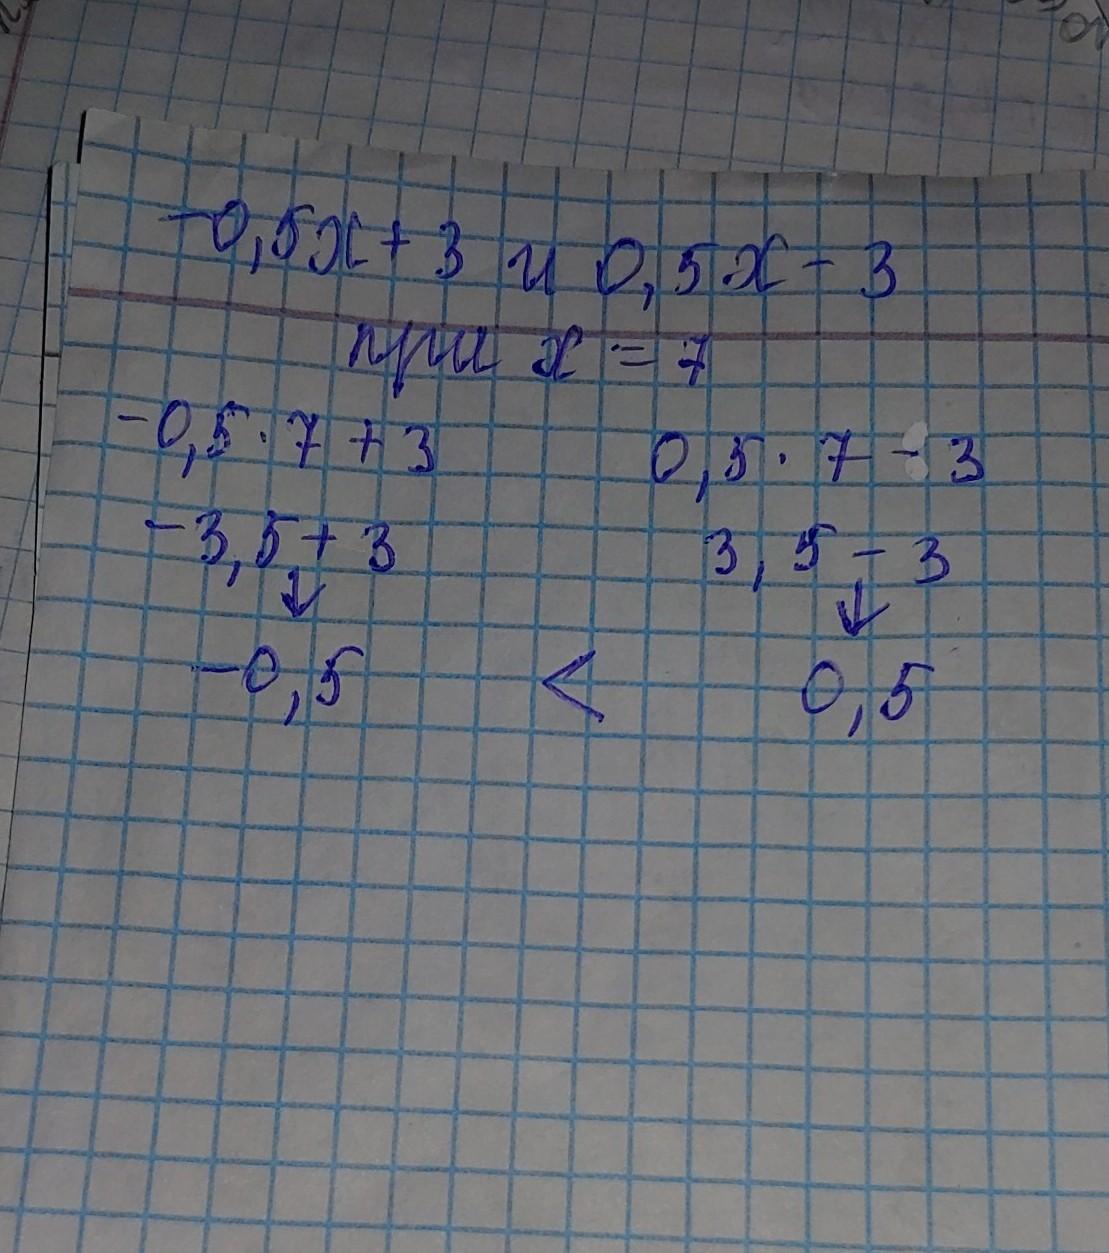 -0,5x + 3 и 0,5x - 3
при x = 7
-0,5 · 7 + 3 0,5 · 7 - 3
-3,5 + 3 3,5 - 3
↓ ↓
-0,5 < 0,5